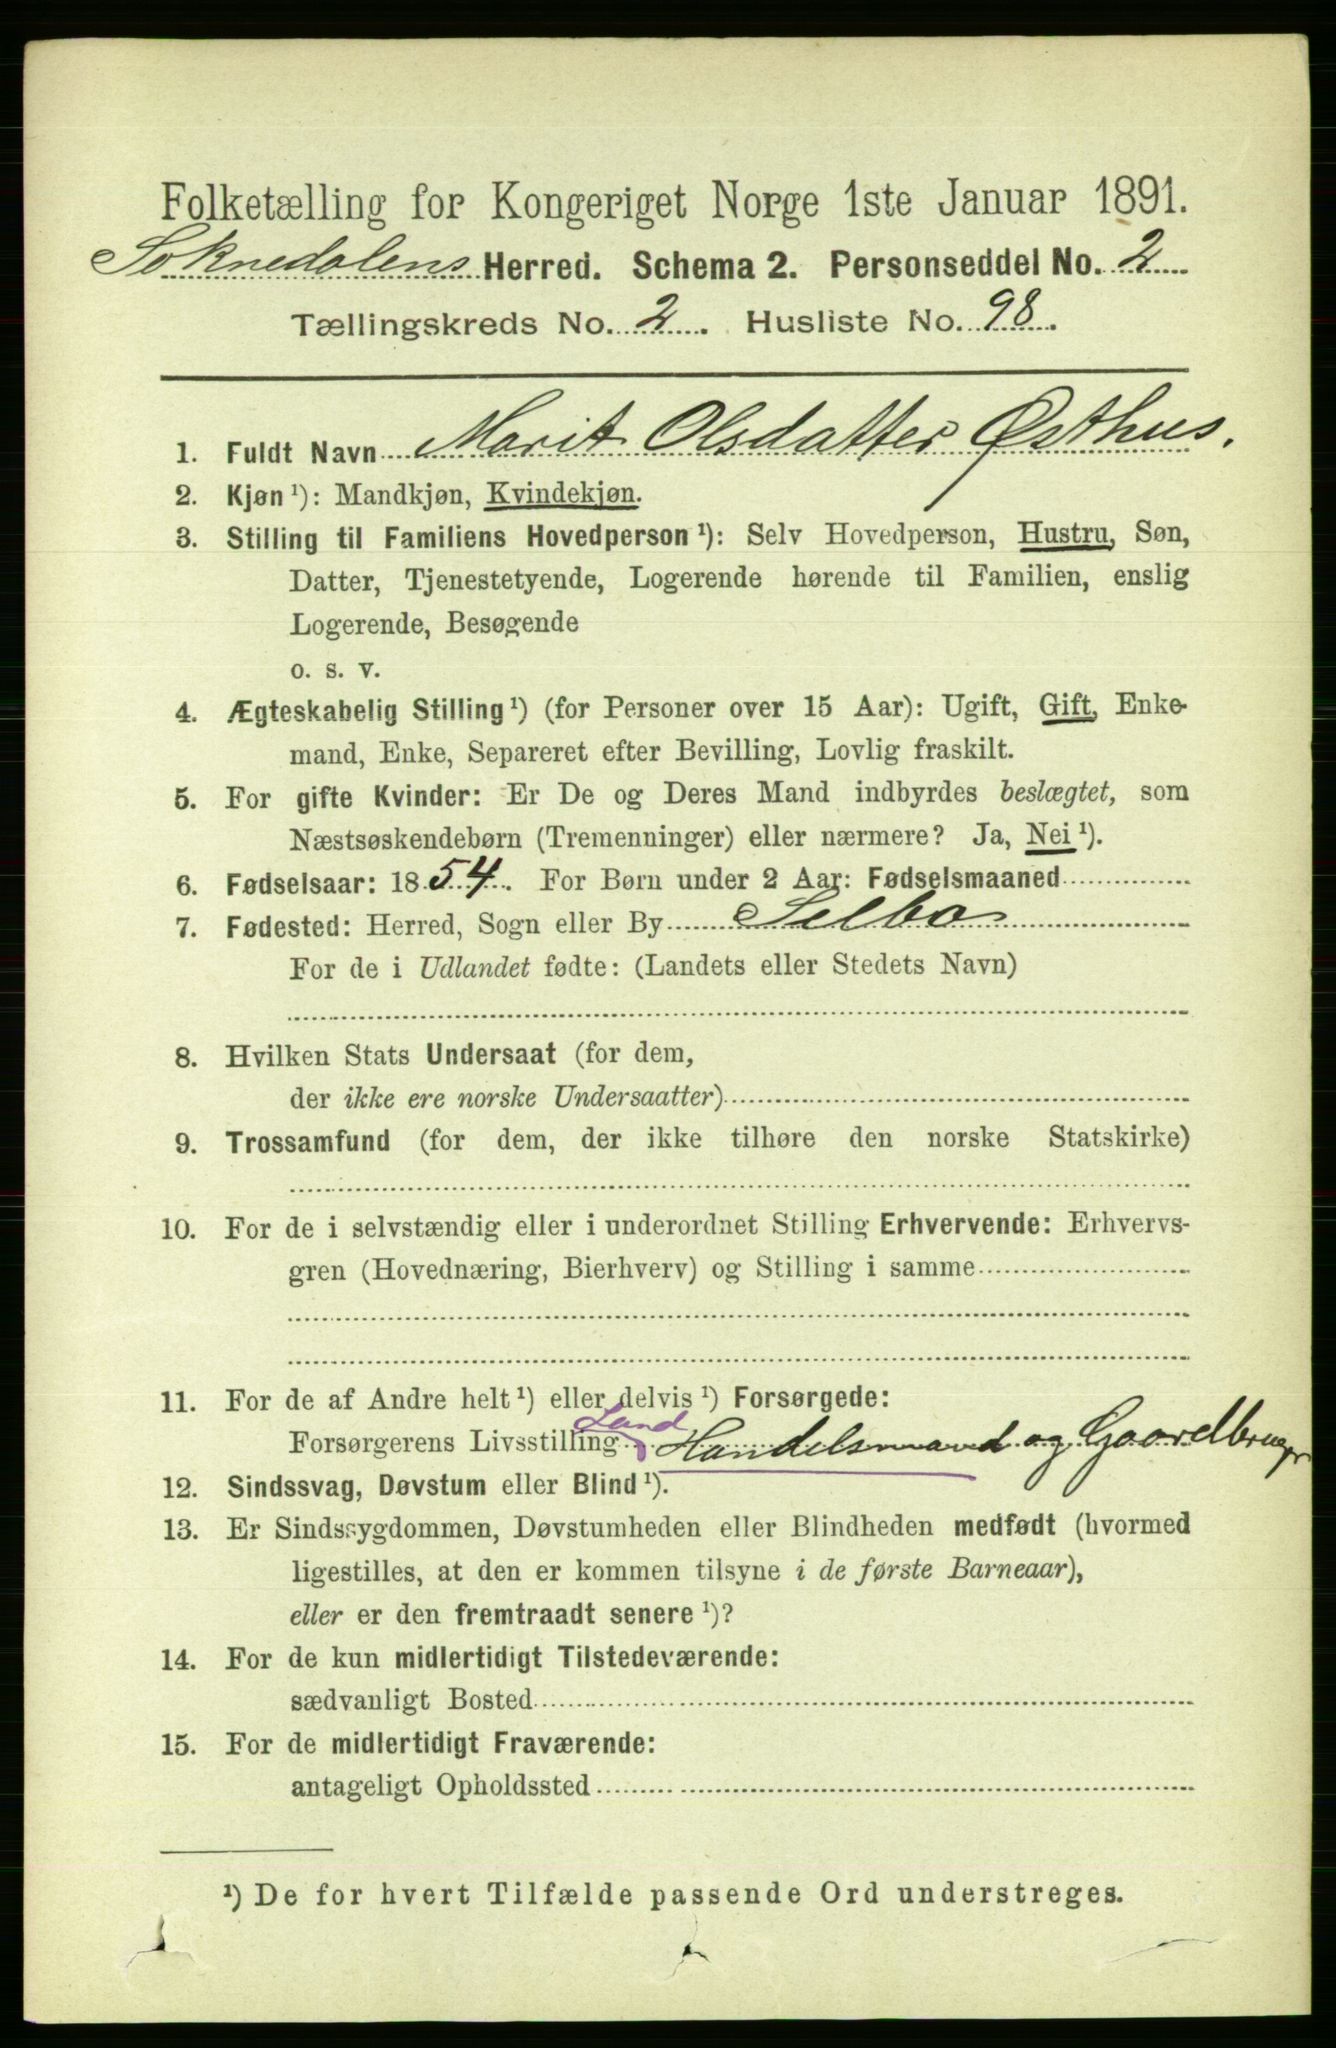 Folketælling for Kongeriget Norge 1ste Januar 1891.
Soknedalens Herred. Schema 2. Personseddel No. 2
Tællingskreds No. 2. Husliste No. 98.
1. Fuldt Navn Marit Olsdatter Østhus.
2. Kjøn ¹): Mandkjøn, Kvindekjøn.
3. Stilling til Familiens Hovedperson ¹): Selv Hovedperson, Hustru, Søn,
Datter, Tjenestetyende, Logerende hørende til Familien, enslig
Logerende, Besøgende
o. s. v.
4. Ægteskabelig Stilling ¹) (for Personer over 15 Aar): Ugift, Gift, Enke-
mand, Enke, Separeret efter Bevilling, Lovlig fraskilt.
5. For gifte Kvinder: Er De og Deres Mand indbyrdes beslægtet, som
Næstsøskendebørn (Tremenninger) eller nærmere? Ja, Nei ¹).
6. Fødselsaar: 1854. For Børn under 2 Aar: Fødselsmaaned
7. Fødested: Herred, Sogn eller By Selbo
For de i Udlandet fødte: (Landets eller Stedets Navn)
8. Hvilken Stats Undersaat (for dem,
der ikke ere norske Undersaatter)
9. Trossamfund (for dem, der ikke tilhøre den norske Statskirke)
10. For de i selvstændig eller i underordnet Stilling Erhvervende: Erhvervs-
gren (Hovednæring, Bierhverv) og Stilling i samme
11. For de af Andre helt ¹) eller delvis ¹) Forsørgede:
Land
Forsørgerens Livsstilling Handelsmand og Gaardbruger
12. Sindssvag, Døvstum eller Blind ¹).
13. Er Sindssygdommen, Døvstumheden eller Blindheden medfødt (hvormed
ligestilles, at den er kommen tilsyne i de første Barneaar),
eller er den fremtraadt senere ¹)?
14. For de kun midlertidigt Tilstedeværende:
sædvanligt Bosted
15. For de midlertidigt Fraværende:
antageligt Opholdssted
¹) De for hvert Tilfælde passende Ord understreges.